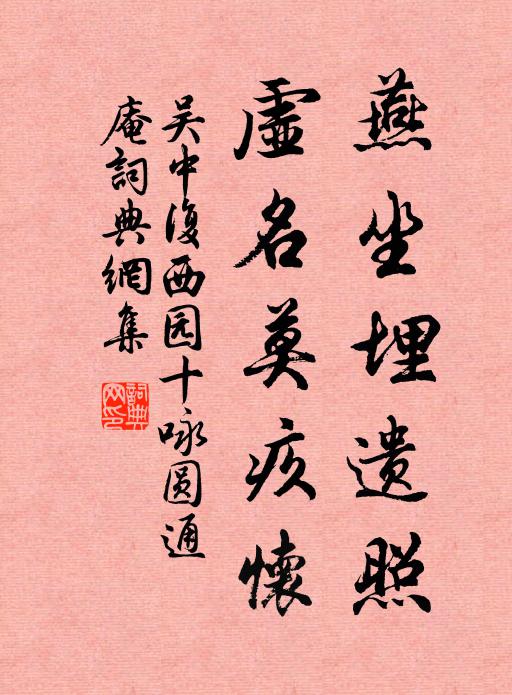 燕坐埋遗照
虚名莫疚懷
吴中復西园十咏圆通
庵詞典網集
詞典
网印